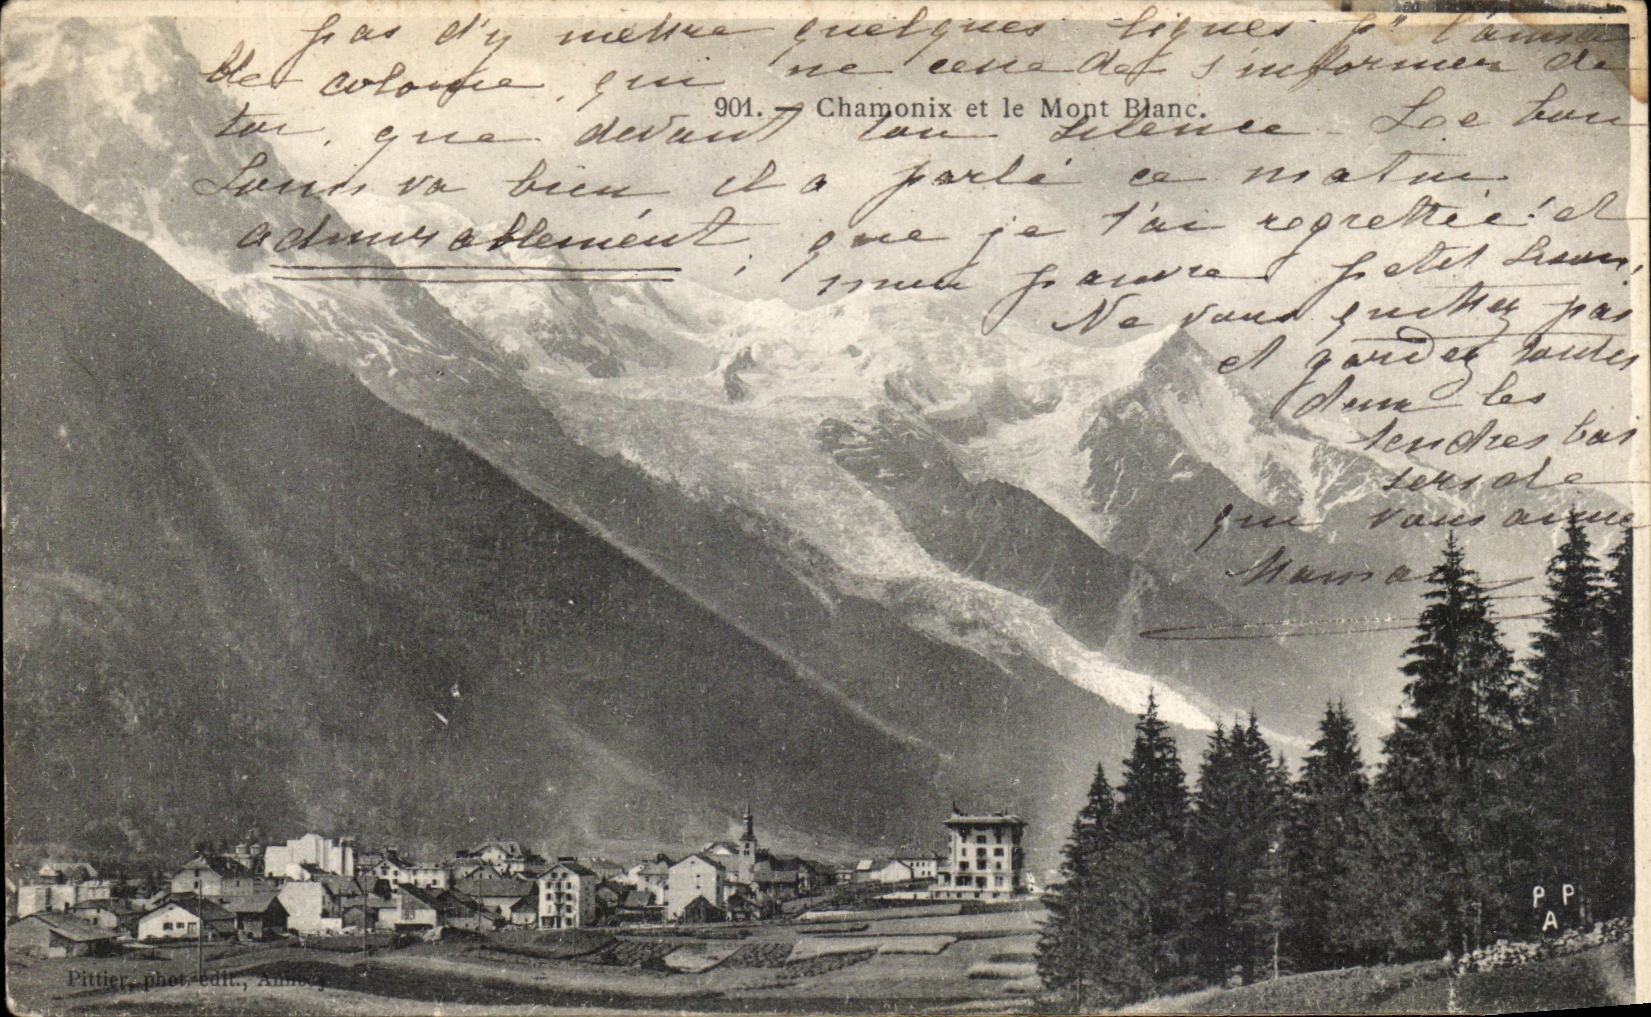 pas d'y mettre quelques lignes pr l'aima
ble colonie, qui ne cesse de s'informer de
toi, que devant ton silence. Le bon
901. - Chamonix et le Mont Blanc.
Louis va bien il a parlé ce matin
admirablement, que je t'ai regrettée! et
mon pauvre petit
Ne vous quittez pas
et gardez toutes
deux les
tendres bai
sers de
qui vous aime
Maman
PPA
Pittier, phot. édit., Annecy